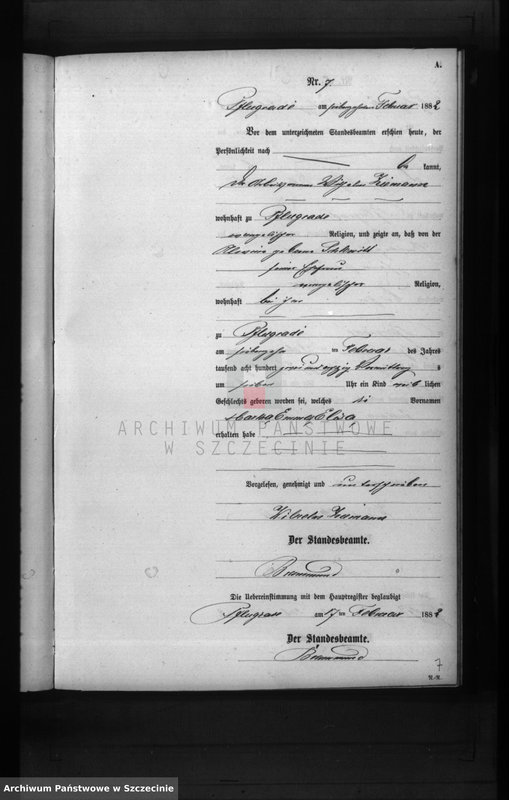 A.
Nr. 7.
Pflugrade am siebzehnten Februar 1882
Vor dem unterzeichneten Standesbeamten erschien heute, der
Persönlichkeit nach
be kannt,
der Wilhelm Ziemann
wohnhaft zu Pflugrade
evangelischer Religion, und zeigte an, daß von der
geborene Schmidt
seiner Ehefrau
evangelischer Religion,
wohnhaft bei ihm
zu Pflugrade
am siebzehnten Februar des Jahres
tausend acht hundert zwei und achtzig Vormittags
um sieben Uhr ein Kind weib lichen
Geschlechts geboren worden sei, welches die Vornamen
Martha Emma Elsa
erhalten habe
Vorgelesen, genehmigt und unterschrieben
Wilhelm Ziemann
Der Standesbeamte.
Die Uebereinstimmung mit dem Hauptregister beglaubigt
Pflugrade am 17 ten Februar 1882
Der Standesbeamte.
7
ARCHIWUM PAŃSTWOWE
W SZCZECINIE
Archiwum Państwowe w Szczecinie